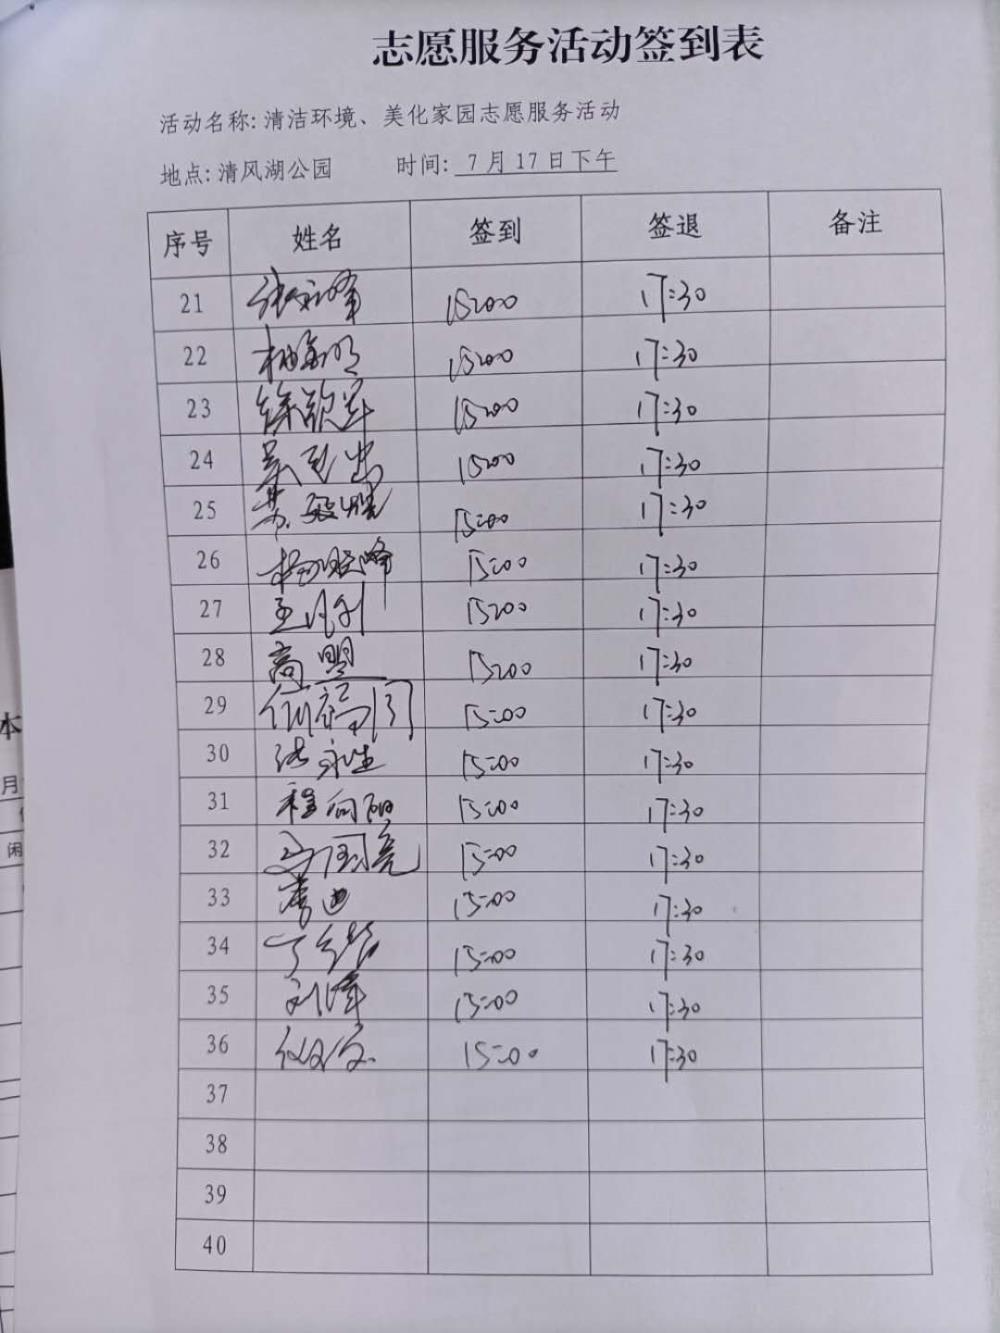 志愿服务活动签到表
活动名称: 清洁环境、美化家园志愿服务活动
地点: 清风湖公园 时间: 7月17日下午
序号 姓名 签到 签退 备注
21 张永峰 15:00 17:30
22 15:00 17:30
23 徐歆军 15:00 17:30
24 15:00 17:30
25 15:00 17:30
26 杨晓峰 15:00 17:30
27 15:00 17:30
28 高盟 15:00 17:30
29 15:00 17:30
30 张永生 15:00 17:30
31 程向阳 15:00 17:30
32 马国亮 15:00 17:30
33 李迪 15:00 17:30
34 15:00 17:30
35 刘峰 15:00 17:30
36 15:00 17:30
37
38
39
40
本
月
闲